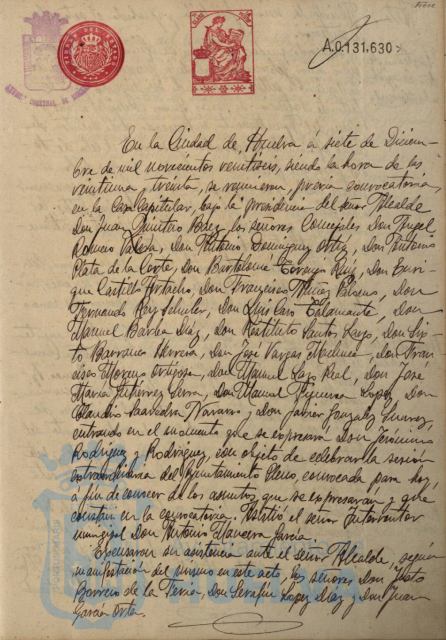 A.0.131.630
En la Ciudad de Huelva á siete de Diciem-
bre de mil novecientos veintiseis, siendo la hora de las
veintiuna treinta, se reunieron, previa convocatoria
en la Casa Capitular, bajo la presidencia del señor Alcalde
Don Juan Quintero Báez, los señores Concejales Don Angel
Romero Don Antonio Dominguez Ortiz, Don Antonio
Plata de la Corte, Don Bartolomé Toronjo Ruiz, Don Enri-
que Castilla Hortacho, Don Francisco Muñoz Don
Fernando Rey Schuler, Don Luis Caro Don
Manuel Barba Diaz, Don Restituto Santos Don Six-
to Barranco Herrera, Don José Vargas Machuca, don Fran-
cisco Moreno Ortigosa, Don Manuel Real, Don José
María Gutiérrez Serra, Don Manuel Figueroa Lopez, Don
Claudio Saavedra Navarro y Don Javier Gonzalez
entrando en el momento que se expresara Don Jerónimo
Rodriguez y Rodriguez, con objeto de celebrar la sesión
extraordinaria del Ayuntamiento Pleno, convocada para hoy,
á fin de conocer de los asuntos que se expresaran y que
constan en la convocatoria. Asistió el señor Interventor
municipal Don Antonio García.
Excusaron su asistencia ante el señor Alcalde, según
manifestación del mismo en este acto, los señores Don Justo
Borrero de la Feria, Don Serafín Lopez Diaz y Don Juan
García Orta.